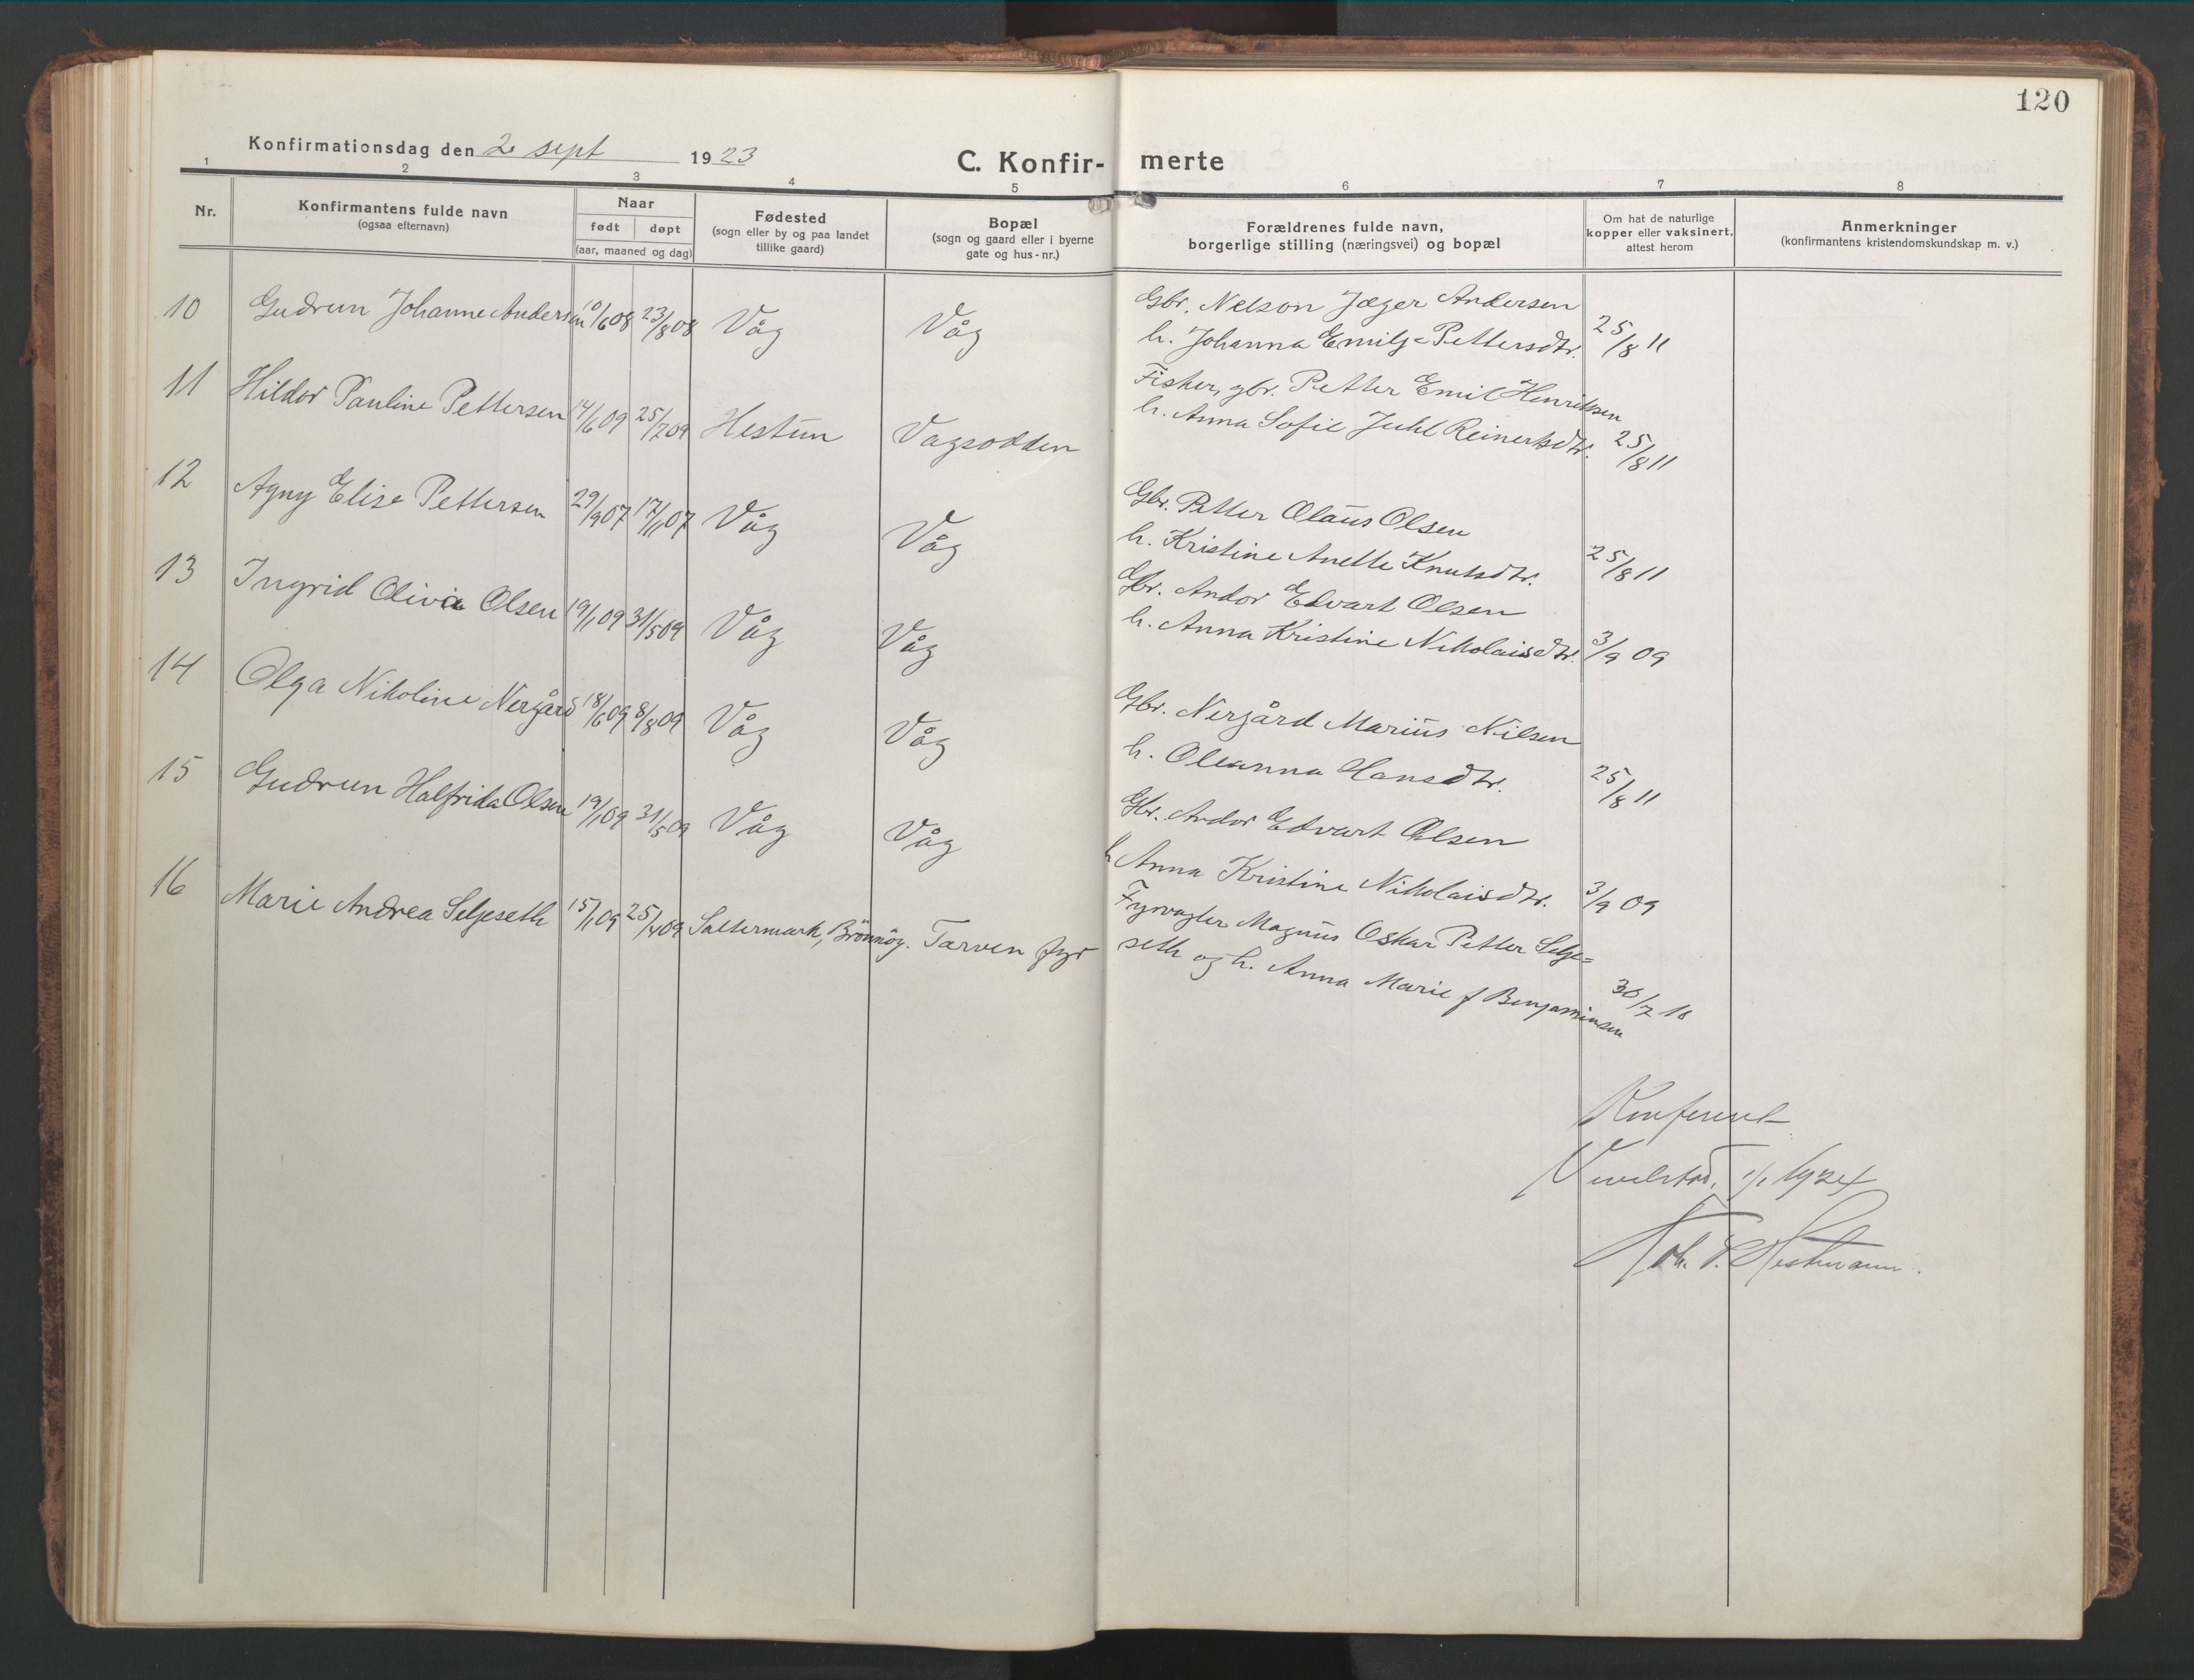 120
Konfirmationsdag den 2 sept 1923
C. Konfir- merte
1 2 3 4 5 6 7 8
Nr.
Konfirmantens fulde navn
(ogsaa efternavn)
Naar
født døpt
(aar, maaned og dag)
Fødested
(sogn eller by og paa landet
tillike gaard)
Bopæl
(sogn og gaard eller i byerne
gate og hus-nr.)
Forældrenes fulde navn,
borgerlige stilling (næringsvei) og bopæl
Om hat de naturlige
kopper eller vaksinert,
attest herom
Anmerkninger
(konfirmantens kristendomskundskap m. v.)
10 Gudrun Johanne Andersen 10/6 08 23/8 08 Våg Våg Gbr. Nelson Jæger Andersen
h. Johanna Emilje Pettersdtr. 25/8 11
11 Hildor Pauline Pettersen 14/6 09 25/7 09 Hestun Vagsodden Fisker, gbr. Petter Emil Henriksen
h. Anna Sofie Juhl Reinertsdtr. 25/8 11
12 Agny Elise Pettersen 29/9 07 17/11 07 Våg Våg Gbr. Petter Olaus Olsen
h. Kristine Anette Knutsdtr. 25/8 11
13 Ingrid Olivia Olsen 19/1 09 31/5 09 Våg Våg Gbr. Andor Edvart Olsen
h. Anna Kristine Nikolaisdtr. 3/9 09
14 Olga Nikoline Nergård 18/6 09 8/8 09 Våg Våg Gbr. Nergård Marius Nilsen
h. Oleanna Hansdtr. 25/8 11
15 Gudrun Halfrida Olsen 19/1 09 31/5 09 Våg Våg Gbr. Andor Edvart Olsen
h Anna Kristine Nikolaisdtr. 3/9 09
16 Marie Andrea Seljeseth 15/1 09 25/4 09 Saltermark, Brönnöy. Tarven fyr Fyrvagter Magnus Oskar Petter Selje=
seth og h. Anna Marie f Benjaminsen 30/7 18
Konferert
Vevelstad, 1/1 1924
Joh. F. Hestmann.